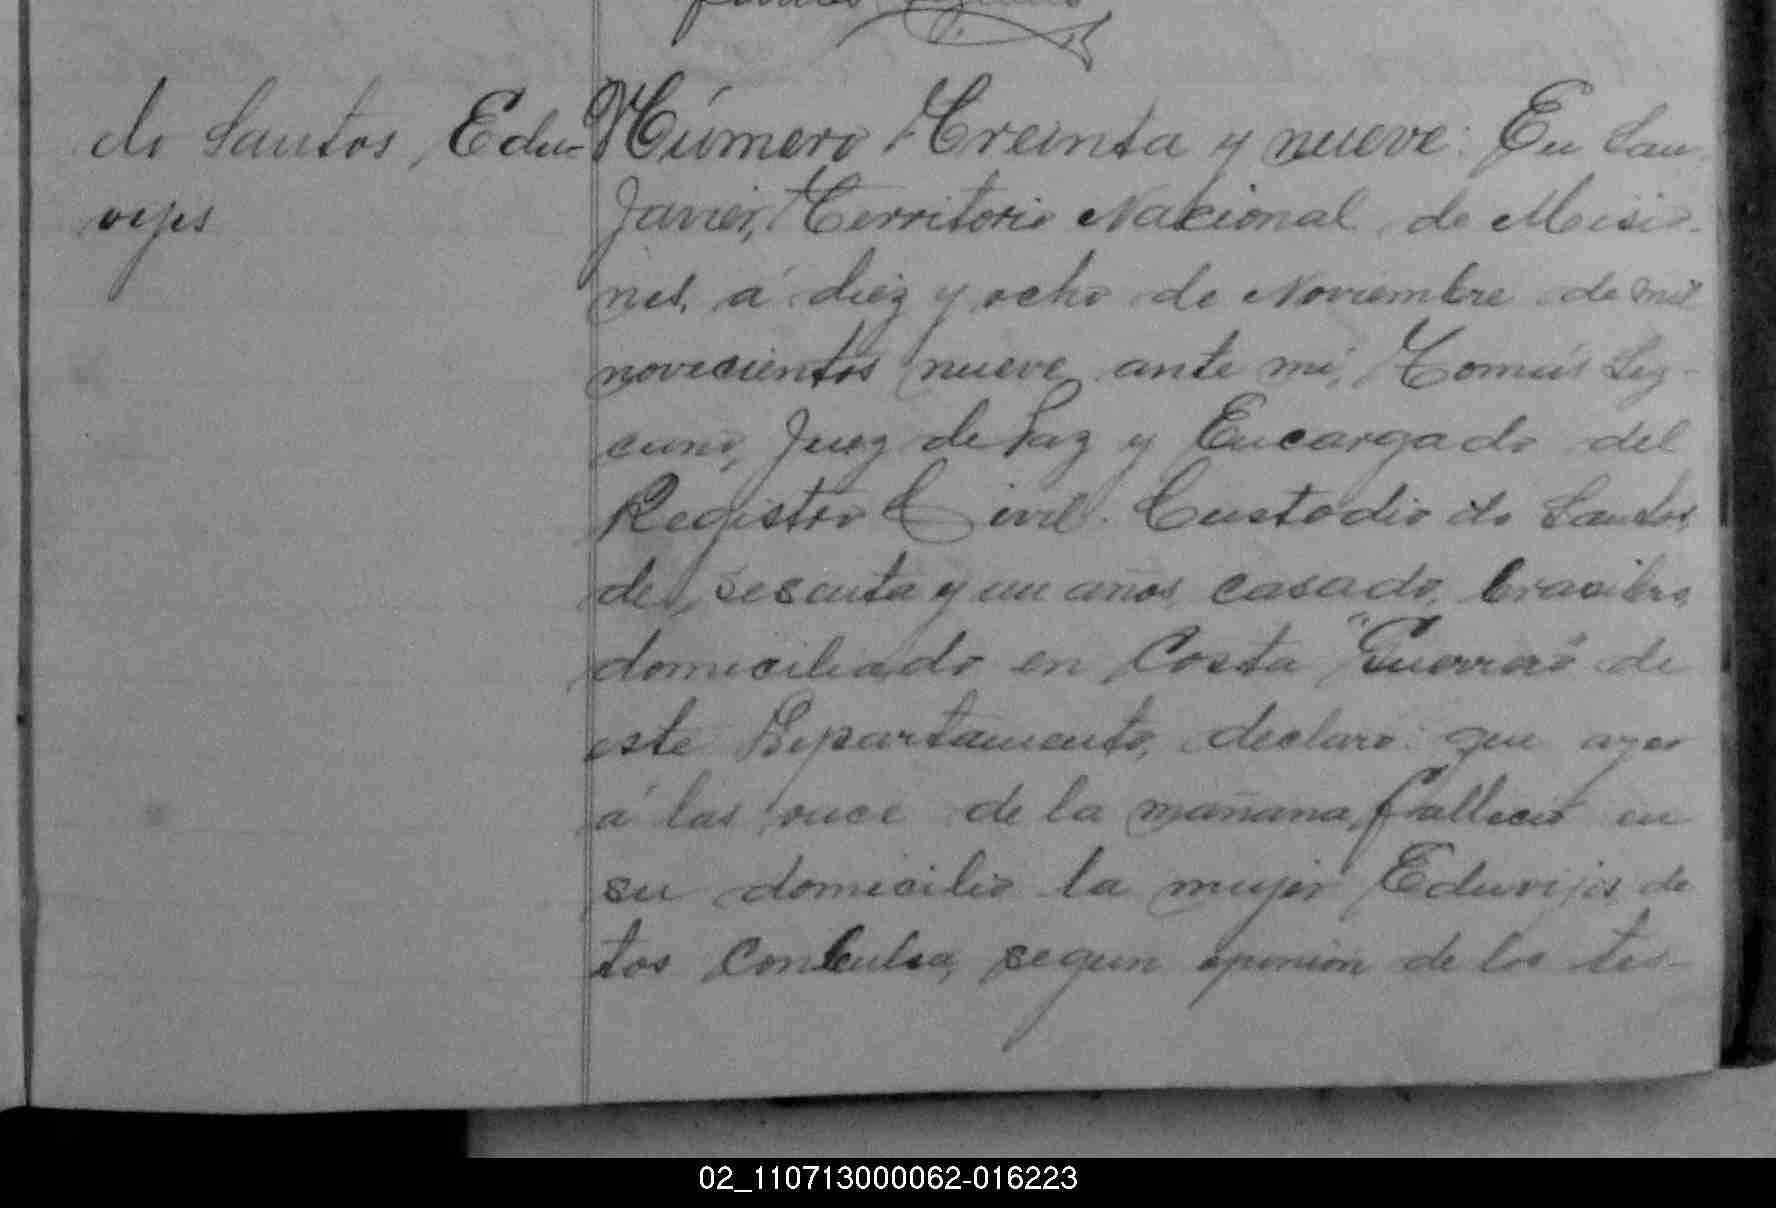 do Santos, Edu-
vijes
Número Treinta y nueve: En San
Javier, Territorio Nacional de Misio-
nes, á diez y ocho de Noviembre de mil
novecientos nueve ante mi, Tomás
Juez de Paz y Encargado del
Registro Civil. Custodio do Santos,
de sesenta y un años, casado, brasilero
domiciliado en Costa "Guerrero" de
este Departamento, declaro: que ayer
á las once de la mañana, fallecio en
su domicilio la mujer Eduvijis de
tos Conbulsa, segun opinión de los tes-
02_110713000062-016223